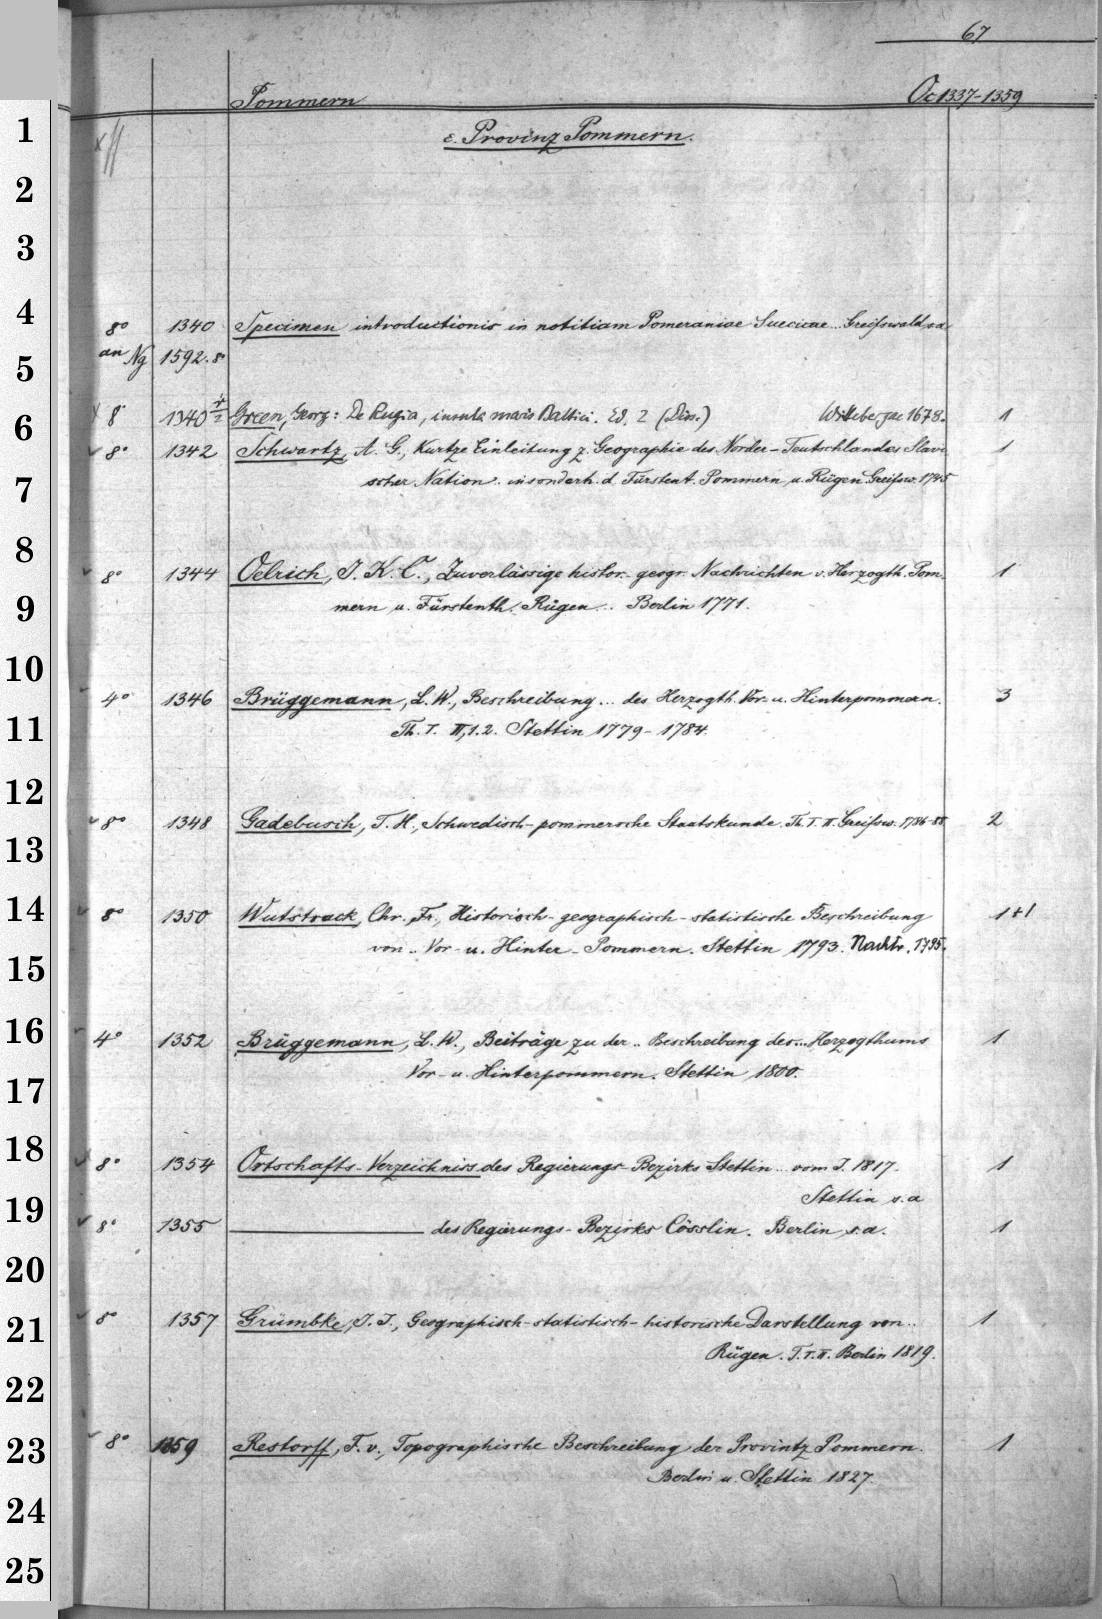 67
Pommern Oc 1337-1359
c. Provinz Pommern.
8° 1340 Specimen introductionis in notitiam Pomeraniae Suecicae.. Greifswald s.a.
an Ng 1592. 8°
8° 1340 Green, Georg: De Rugia, insula maris Baltici. Ed. 2 (Diss.) Wittebergae 1678. 1
8° 1342 Schwartz, A. G., Kurtze Einleitung z. Geographie des Norder-Teutschlandes Slavi- 1
scher Nation. insonderh. d. Fürstent. Pommern u. Rügen. Greifsw. 1745
8° 1344 Oelrich, J. K. C., Zuverlässige histor.- geogr. Nachrichten v. Herzogth. Pom- 1
mern u. Fürstenth. Rügen... Berlin 1771.
4° 1346 Brüggemann, L. W., Beschreibung ... des Herzogth. Vor- u. Hinterpommern. 3
Th. I. II,1.2. Stettin 1779-1784.
8° 1348 Gadebusch, T. H., Schwedisch-pommersche Staatskunde. Th. I. II. Greifsw. 1786-88. 2
8° 1350 Wutstrack, Chr. Fr., Historisch-geographisch-statistische Beschreibung 1+1
von .. Vor- u. Hinter-Pommern. Stettin 1793. Nachtr. 1795.
4° 1352 Brüggemann, L. W., Beiträge zu der .. Beschreibung des... Herzogthums 1
Vor- u. Hinterpommern. Stettin 1800.
8° 1354 Ortschafts-Verzeichniss des Regierungs-Bezirks Stettin .. vom J. 1817. 1
Stettin s.a
8° 1355 des Regierungs-Bezirks Cösslin. Berlin s.a. 1
8° 1357 Grümbke, J. J., Geographisch-statistisch-historische Darstellung von .. 1
Rügen. T. I. II. Berlin 1819.
8° 1359 Restorff, F. v., Topographische Beschreibung der Provintz Pommern. 1
Berlin u. Stettin 1827.
1
2
3
4
5
6
7
8
9
10
11
12
13
14
15
16
17
18
19
20
21
22
23
24
25